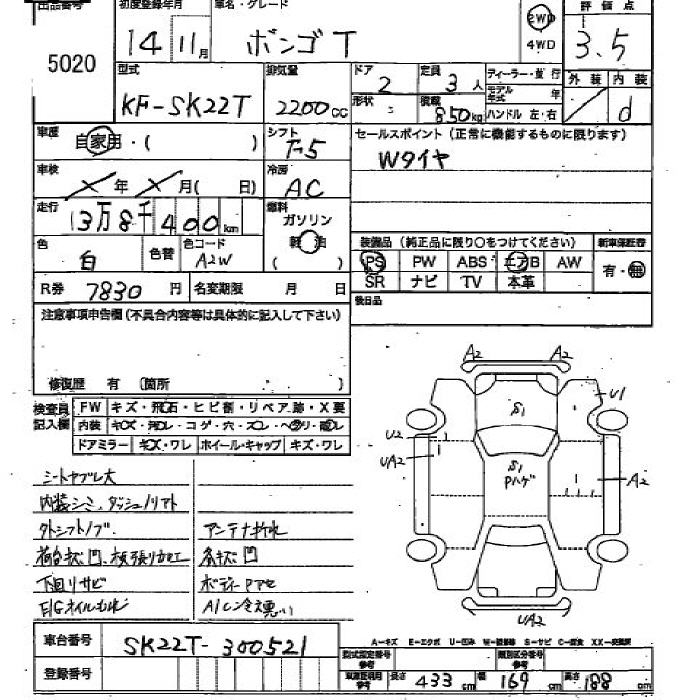 出品番号 初度登録年月 車名・グレード 評価点
5020 14年 11月 ボンゴT 2WD 4WD 3.5
型式 排気量 ドア 定員 ディーラー・並行 外装 内装
KF-SK22T 2200cc 2 3人 モデル年式 年 d
形状 積載 850kg ハンドル 左・右
車歴 自家用・( ) シフト F-5 セールスポイント (正常に機能するものに限ります)
Wタイヤ
車検 ×年 ×月( 日) 冷房 AC
走行 13万8千400km 燃料 ガソリン 軽油 ( )
色 白 色替 色コード A2W
装備品 (純正品に限り○をつけてください) 新車保証書
PS PW ABS エアB AW 有・無
SR ナビ TV 本革
R券 7830円 名変期限 月 日 後日品
注意事項申告欄 (不具合内容等は具体的に記入して下さい)
修復歴 有 (箇所 )
検査員記入欄 FW キズ・飛石・ヒビ割・リペア跡・X要
内装 キズ・汚レ・コゲ・穴・スレ・ヘタリ・破レ
ドアミラー キズ・ワレ ホイール・キャップ キズ・ワレ
シートヤブレ大
内装シミ、ダッシュノリアト
外シフトノブ アンテナ折れ
荷台キズ凹、板張り加工 各キズ凹
下回りサビ ボディーPアセ
E/Gオイルもれ A/C冷え悪い
A2 A2
S1 U1
U2 UA2
S1 Pハゲ
A2
UA2
車台番号 SK22T-300521
登録番号
A-キズ E-エクボ U-凹み S-サビ
型式指定番号 参考 類別区分番号 参考
長さ 433cm 幅 169cm 高さ 188cm